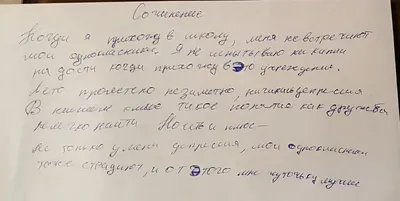 Сочинение
Когда я прихожу в школу, меня не встречают
мои одноклассники. Я не испытываю никакой
радости когда прихожу в это учереждение.
Лето пролетело незаметно, началась депрессия
В нашем классе такое понятие как дружба
нелегко найти Но есть и плюс —
Не только у меня депрессия, мои одноклассники
тоже страдают, и от этого мне чуточку лучше